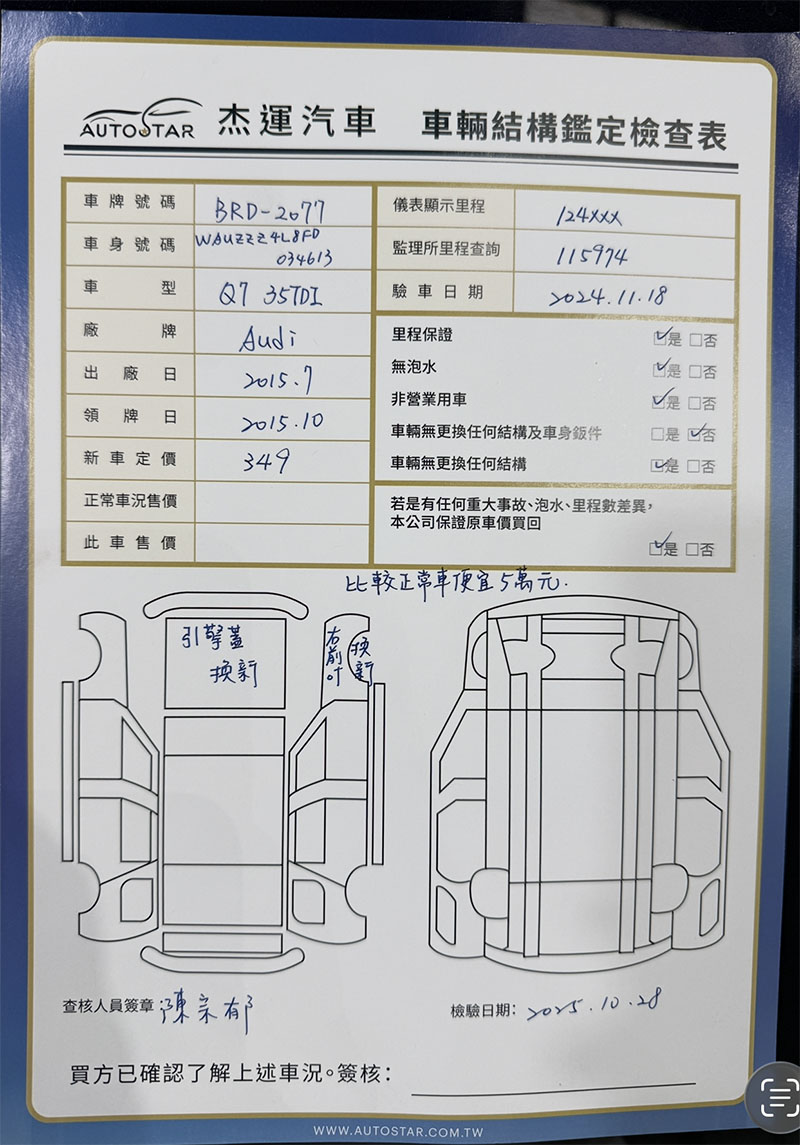 AUTOSTAR 杰運汽車 車輛結構鑑定檢查表
車牌號碼 BRD-2077
車身號碼 WAUZZZ4L8FD
034613
車型 Q7 35TDI
廠牌 Audi
出廠日 2015.7
領牌日 2015.10
新車定價 349
正常車況售價
此車售價
儀表顯示里程 124xxx
監理所里程查詢 115974
驗車日期 2024.11.18
里程保證 ☑是 □否
無泡水 ☑是 □否
非營業用車 ☑是 □否
車輛無更換任何結構及車身鈑件 □是 ☑否
車輛無更換任何結構 ☑是 □否
若是有任何重大事故、泡水、里程數差異，
本公司保證原車價買回
☑是 □否
比較正常車便宜5萬元.
引擎蓋
換新
右前叶
換新
查核人員簽章: 陳宗郁
檢驗日期: 2025.10.28
買方已確認了解上述車況。簽核:
WWW.AUTOSTAR.COM.TW